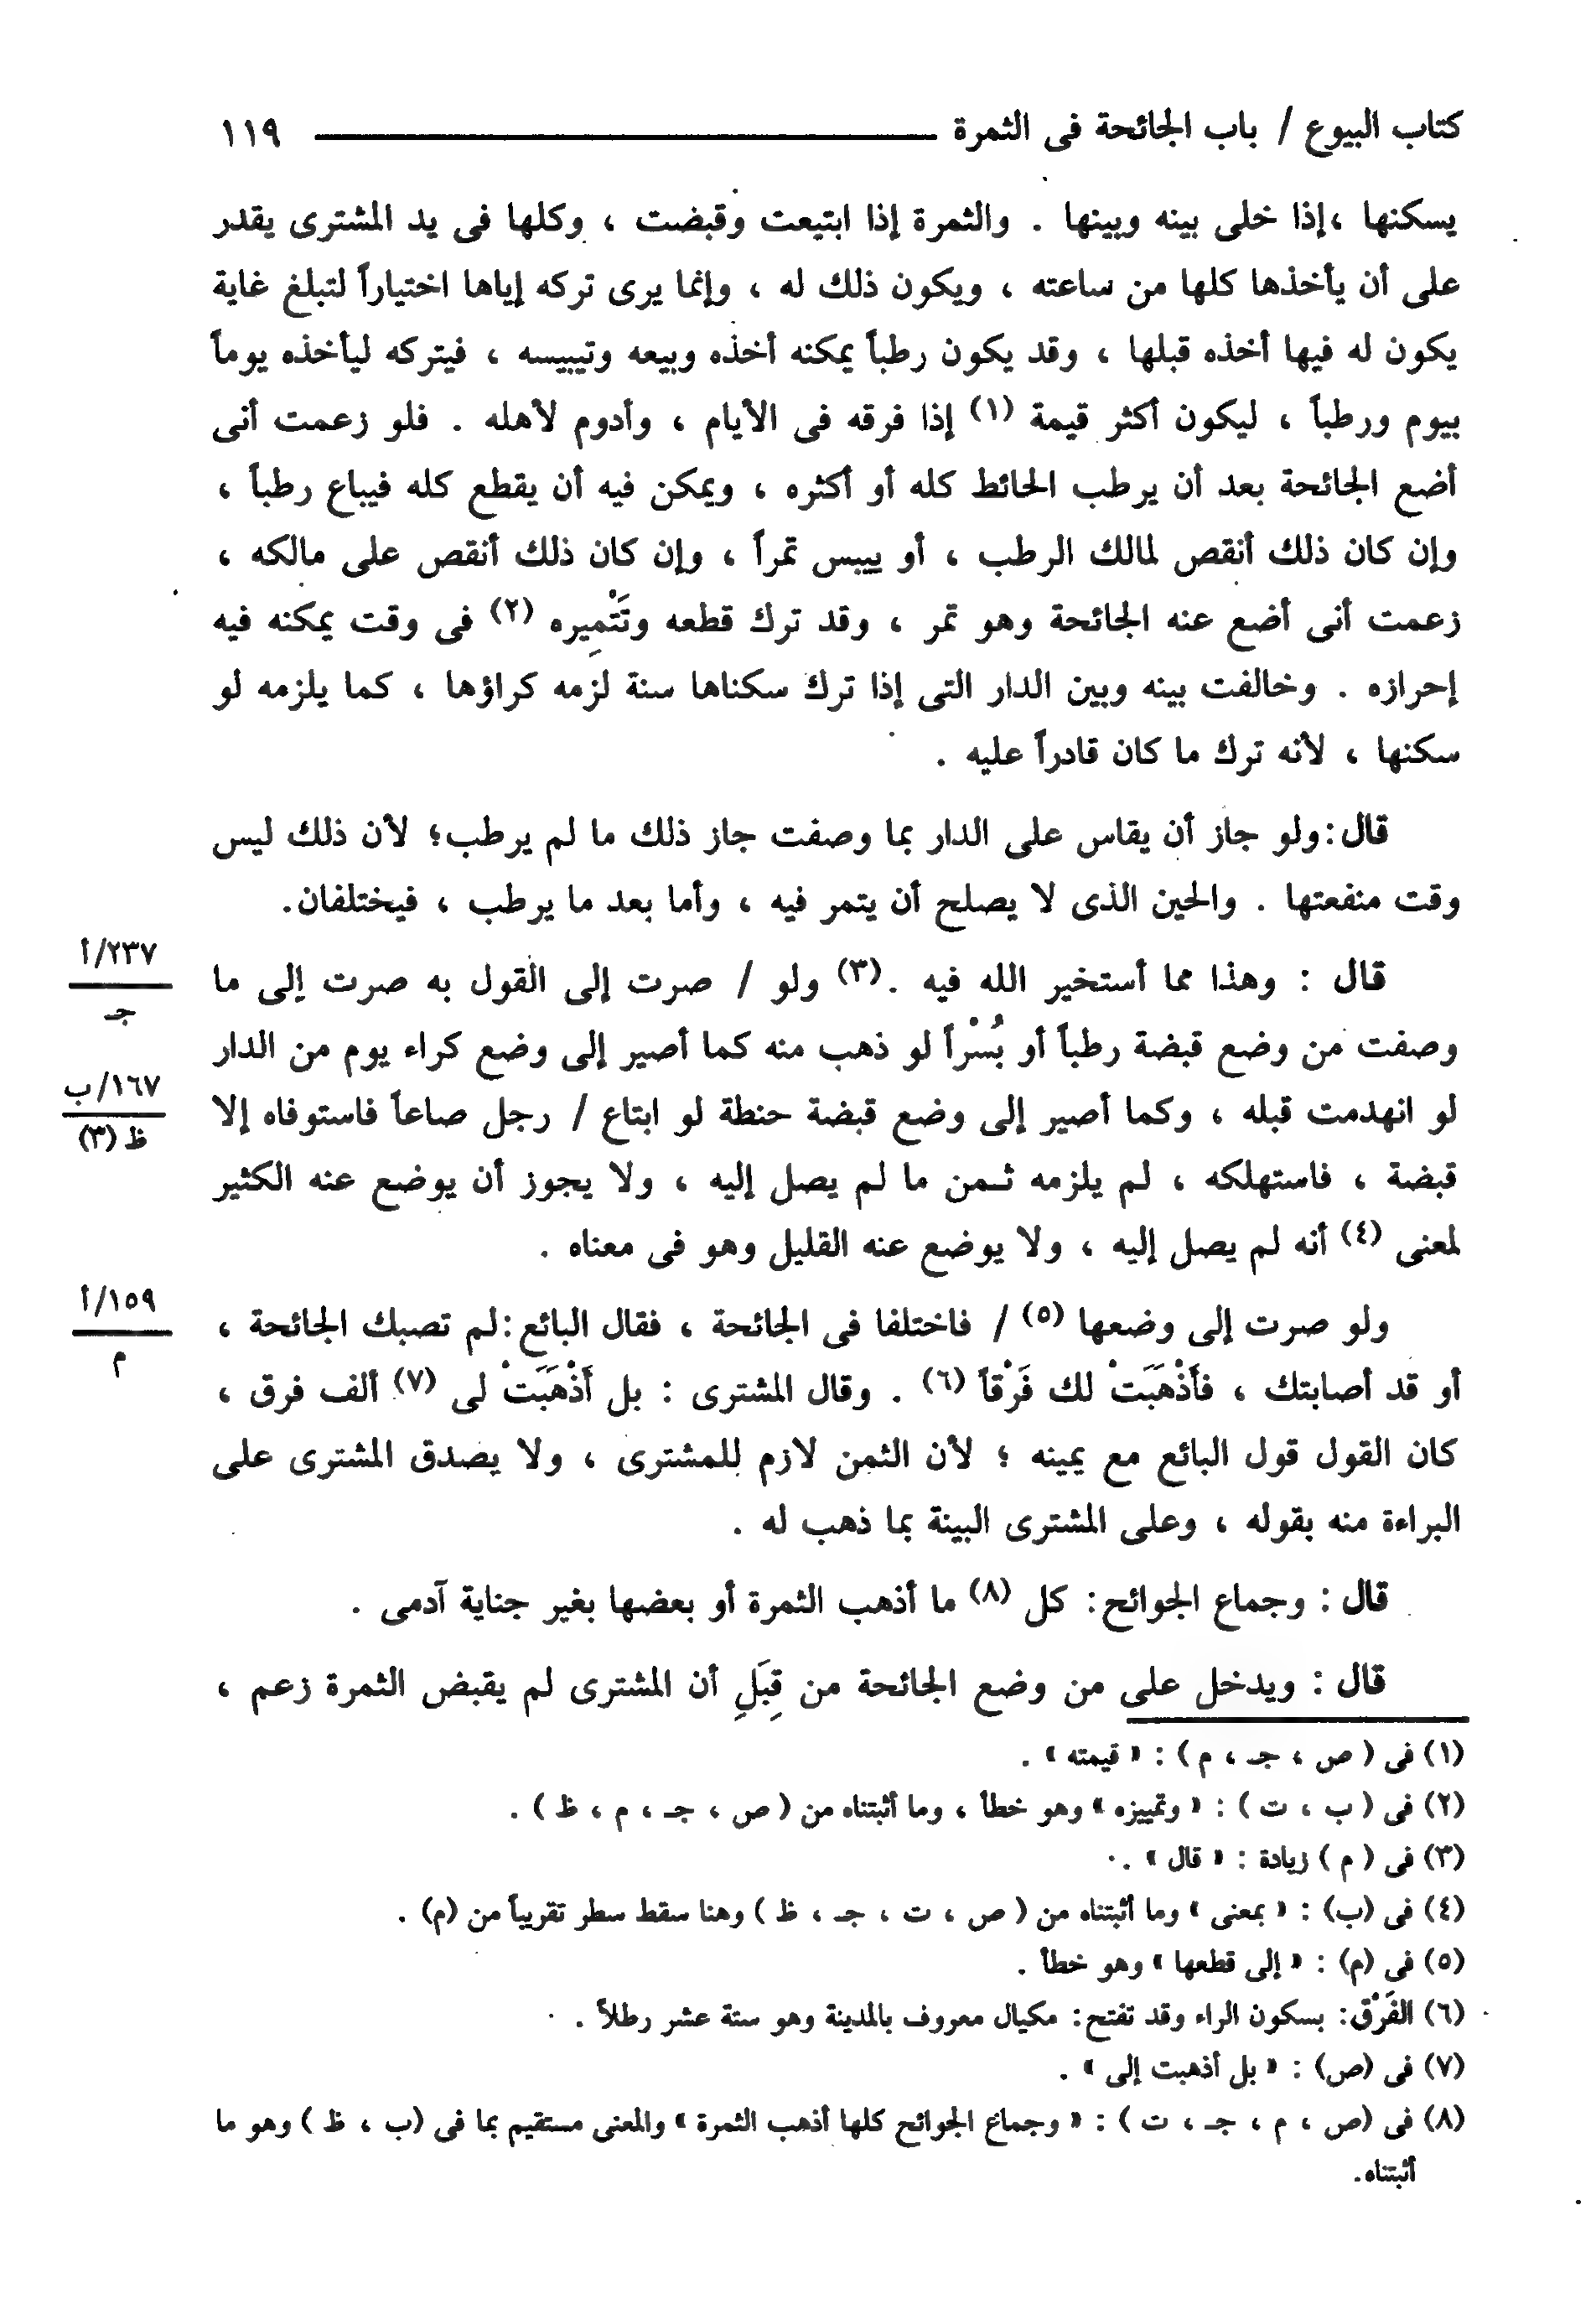 كتاب البيوع / باب الجائحة فى الثمرة ١١٩
يسكنها ،إذا خلى بينه وبينها . والثمرة إذا ابتيعت وقبضت ، وكلها فى يد المشترى يقدر
على أن يأخذها كلها من ساعته ، ويكون ذلك له ، وإنما يرى تركه إياها اختياراً لتبلغ غاية
يكون له فيها أخذه قبلها ، وقد يكون رطباً يمكنه أخذه وبيعه وتيبيسه ، فيتركه ليأخذه يوماً
بيوم ورطباً ، ليكون أكثر قيمة (١) إذا فرقه فى الأيام ، وأدوم لأهله . فلو زعمت أنى
أضع الجائحة بعد أن يرطب الحائط كله أو أكثره ، ويمكن فيه أن يقطع كله فيباع رطباً ،
وإن كان ذلك أنقص لمالك الرطب ، أو ييبس تمراً ، وإن كان ذلك أنقص على مالكه ،
زعمت أنى أضع عنه الجائحة وهو تمر ، وقد ترك قطعه وتَتْمِيره (٢) فى وقت يمكنه فيه
إحرازه . وخالفت بينه وبين الدار التى إذا ترك سكناها سنة لزمه كراؤها ، كما يلزمه لو
سكنها ، لأنه ترك ما كان قادراً عليه .
قال :ولو جاز أن يقاس على الدار بما وصفت جاز ذلك ما لم يرطب؛ لأن ذلك ليس
وقت منفعتها . والحين الذى لا يصلح أن يتمر فيه ، وأما بعد ما يرطب ، فيختلفان.
قال : وهذا مما أستخير الله فيه .(٣) ولو / صرت إلى القول به صرت إلى ما
٢٣٧/أ
جـ
وصفت من وضع قبضة رطباً أو بُسْراً لو ذهب منه كما أصير إلى وضع كراء يوم من الدار
لو انهدمت قبله ، وكما أصير إلى وضع قبضة حنطة لو ابتاع / رجل صاعاً فاستوفاه إلا
١٦٧/ب
ظ (٣)
قبضة ، فاستهلكه ، لم يلزمه ثـمن ما لم يصل إليه ، ولا يجوز أن يوضع عنه الكثير
لمعنى (٤) أنه لم يصل إليه ، ولا يوضع عنه القليل وهو فى معناه .
ولو صرت إلى وضعها (٥) / فاختلفا فى الجائحة ، فقال البائع :لم تصبك الجائحة ،
١٥٩/أ
م
أو قد أصابتك ، فأَذْهَبَتْ لك فَرْقاً (٦) . وقال المشترى : بل أَذْهَبَتْ لى (٧) ألف فرق ،
كان القول قول البائع مع يمينه ؛ لأن الثمن لازم للمشترى ، ولا يصدق المشترى على
البراءة منه بقوله ، وعلى المشترى البينة بما ذهب له .
قال : وجماع الجوائح : كل (٨) ما أذهب الثمرة أو بعضها بغير جناية آدمى .
قال : ويدخل على من وضع الجائحة من قِبَلِ أن المشترى لم يقبض الثمرة زعم ،
(١) فى ( ص ، جـ ، م ) : « قيمته » .
(٢) فى ( ب ، ت ) : « وتمييزه » وهو خطأ ، وما أثبتناه من ( ص ، جـ ، م ، ظ ) .
(٣) فى ( م ) زيادة : « قال » .
(٤) فى (ب) : « بمعنى » وما أثبتناه من ( ص ، ت ، جـ ، ظ ) وهنا سقط سطر تقريباً من (م) .
(٥) فى (م) : « إلى قطعها » وهو خطأ .
(٦) الفَرْق: بسكون الراء وقد تفتح: مكيال معروف بالمدينة وهو ستة عشر رطلاً .
(٧) فى (ص) : « بل أذهبت إلى » .
(٨) فى (ص ، م ، جـ ، ت ) : « وجماع الجوائح كلها أذهب الثمرة » والمعنى مستقيم بما فى (ب ، ظ ) وهو ما
أثبتناه.